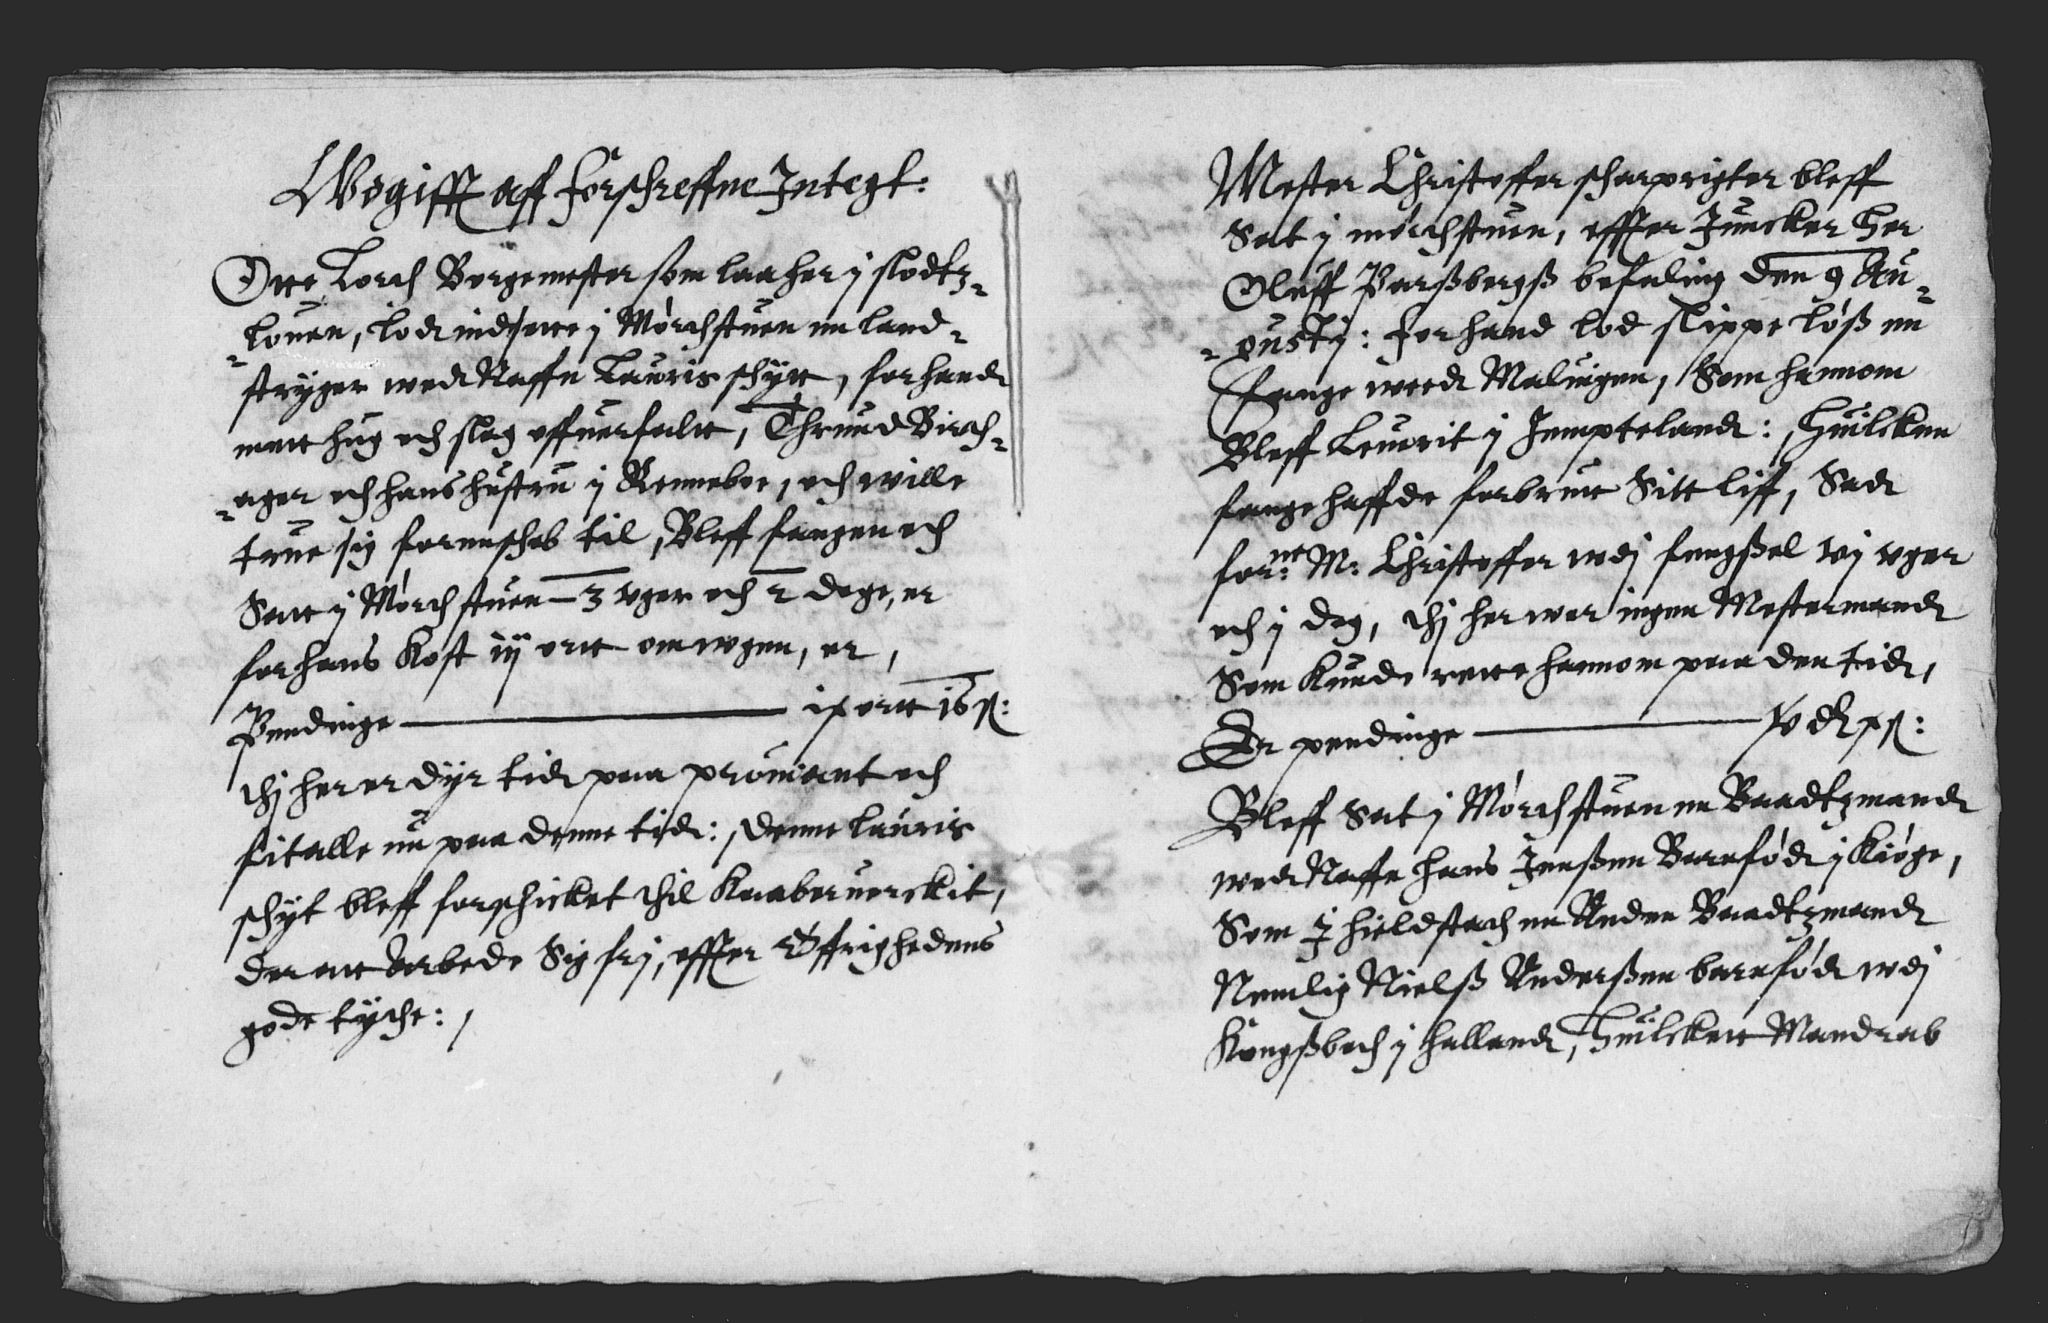 Wdgifft aff forschreffne Integt:
Otte Lorch Borgemester som laa her y slodtz-
-louen, lod indsette y Mørchstuen en land-
stryger wed Naffn Lauris schytt, for hand
mett hug och slag offuerfaltt, Thrund Birch-
-ager och hans hustru y Renneboe, och wille
true sig forenschab til, Bleff fangen och
Satt y Mørchstuen 3 vger och 2 dage, er
for hans Kost iij ortt om wgen, er,
Pendinge ix ortt 16 s:
thj her er dyr tid paa prouiant och
fitalle nu paa denne tid: , denne lauris
schyt bleff forschicket thil Kaaberuerckit,
der att Arbede Sig frj, effter Øffrighedens
gode tyche: ,
Mester Christoffer scharprigter bleff
Sat y mørchstuen, effter Juncker Her
Oluff Parssbergss befaling den 9 Au-
-gustj: for hand lod slippe løss en
Fange weed Malingen, Som hannom
Bleff Leuerit y Jempteland: , Huilcken
fange haffde forbrutt Sitt liff, Sad
for:ne M: Christoffer wdj fengssel vj vger
och j dag, thj her war ingen Mestermand
Som Kunde rette hannom paa den tid,
Er pendinge iv d x s:
Bleff Sat y Mørchstuen en Baadtzmand
wed Naffn Hans Jenssen Barnfød y Kiøge,
Som Ihieldstach en Anden Baadtzmand
Nemlig Nielss Anderssen barnfød wdj
Kongssbach y Halland, Huilckett Mandrab